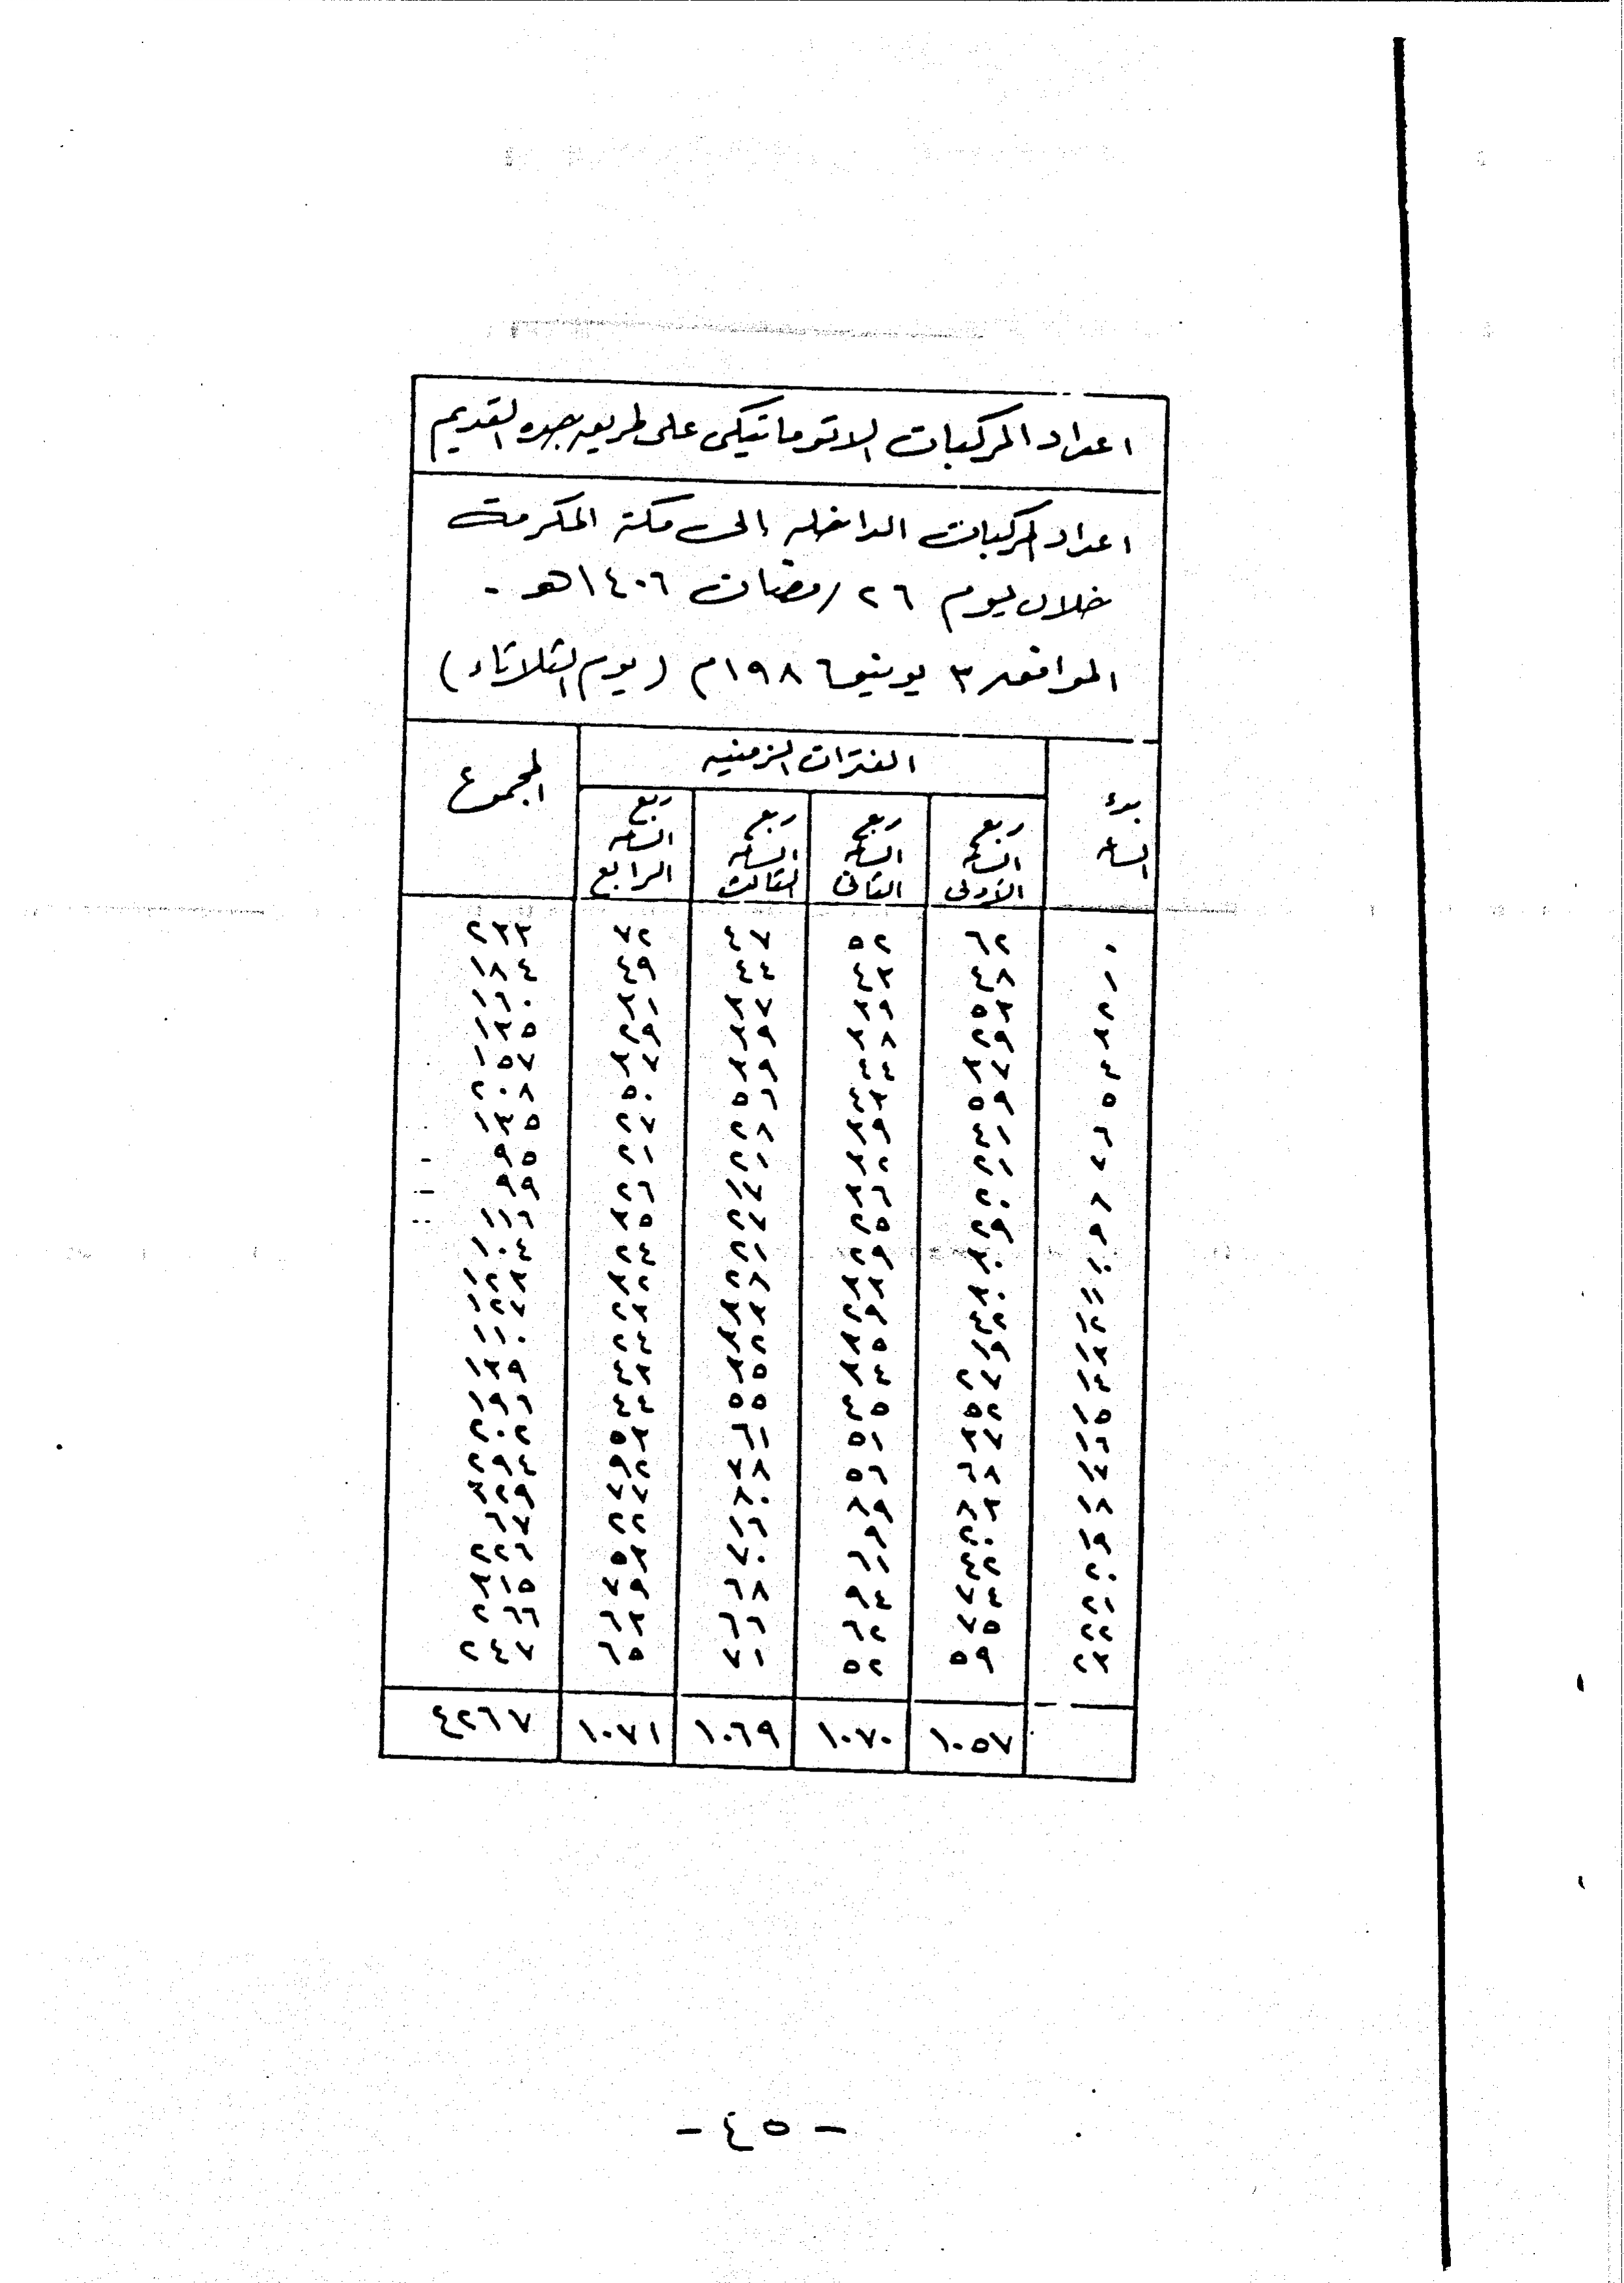 اعداد المركبات الاتوماتيكى على طريق جده القديم
اعداد المركبات الداخله الى مكة المكرمة
خلال يوم ٢٦ رمضان ١٤٠٦هـ -
الموافق ٣ يونيو ١٩٨٦م (يوم الثلاثاء)
بدء الساعه | الفترات الزمنيه | المجموع
ربع الساعه الأولى | ربع الساعه الثانى | ربع الساعه الثالث | ربع الساعه الرابع
٠ ٦٢ ٥٢ ٤٧ ٧٢ ٢٣٣
١ ٤٨ ٤٣ ٤٤ ٤٩ ١٨٤
٢ ٥٣ ٣٩ ٣٧ ٣١ ١٦٠
٣ ٢٩ ٣٨ ٣٩ ٢٩ ١٣٥
٤ ٣٧ ٤٤ ٣٩ ٣٧ ١٥٧
٥ ٥٩ ٤٣ ٥٦ ٥٠ ٢٠٨
٦ ٤١ ٣٩ ٢٨ ٢٧ ١٣٥
٧ ٢١ ٣٢ ٢١ ٢١ ٩٥
٨ ٢٠ ٣٦ ١٧ ٢٦ ٩٩
٩ ٢٩ ٢٥ ٢٧ ٣٥ ١١٦
١٠ ٣٠ ٢٩ ٢١ ٢٤ ١٠٤
١١ ٣٠ ٣٣ ٢٨ ٣٢ ١٢٣
١٢ ٤٢ ٢٩ ٣٣ ٢٣ ١٢٧
١٣ ١٩ ٣٥ ٣٢ ٢٤ ١١٠
١٤ ٢٧ ٣٤ ٣٥ ٤٣ ١٣٩
١٥ ٥٢ ٤٥ ٥٥ ٤٤ ١٩٦
١٦ ٣٧ ٥١ ٦١ ٥٣ ٢٠٢
١٧ ٦٨ ٥٦ ٧٨ ٩٢ ٢٩٤
١٨ ٨٣ ٨٩ ٨٠ ٧٧ ٣٢٩
١٩ ٢٠ ٩ ١٦ ٢٢ ٦٧
٢٠ ٤٢ ٦١ ٧٠ ٥٣ ٢٢٦
٢١ ٧٤ ٩٤ ٦٨ ٧٩ ٣١٥
٢٢ ٧٥ ٦٢ ٦٦ ٦٣ ٢٦٦
٢٣ ٥٩ ٥٢ ٧١ ٦٥ ٢٤٧
١٠٥٧ ١٠٧٠ ١٠٦٩ ١٠٧١ ٤٢٦٧
- ٤٥ -